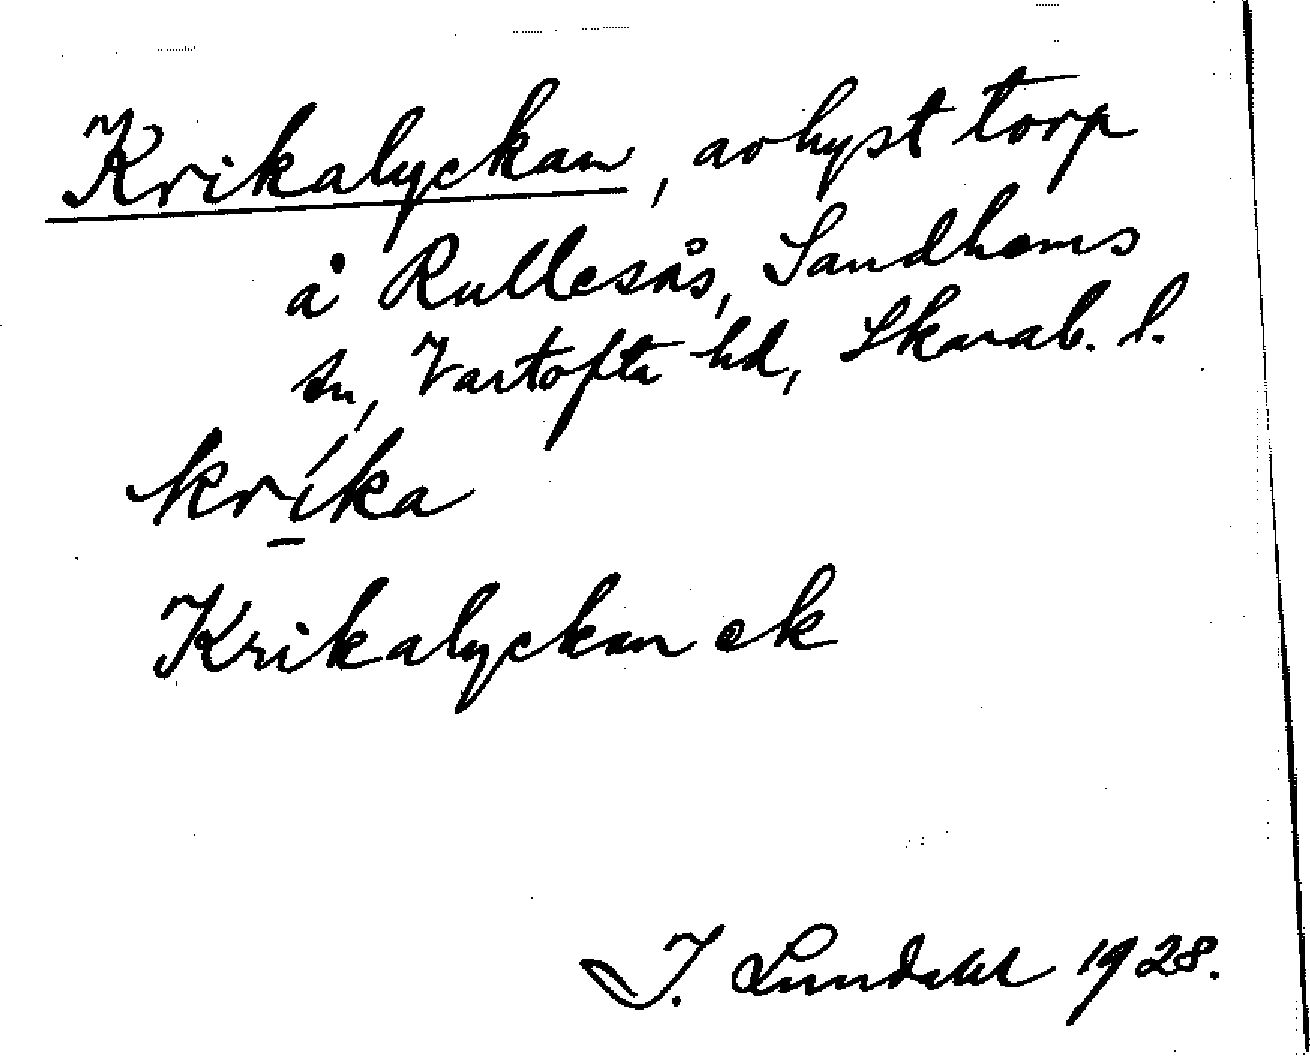 Krikalyckan, avhyst torp
å Rullesås, Sandhems
sn, Vartofta hd, Skarab. l.
kríka
Krikalyckan ek
J. Lundahl 1928.